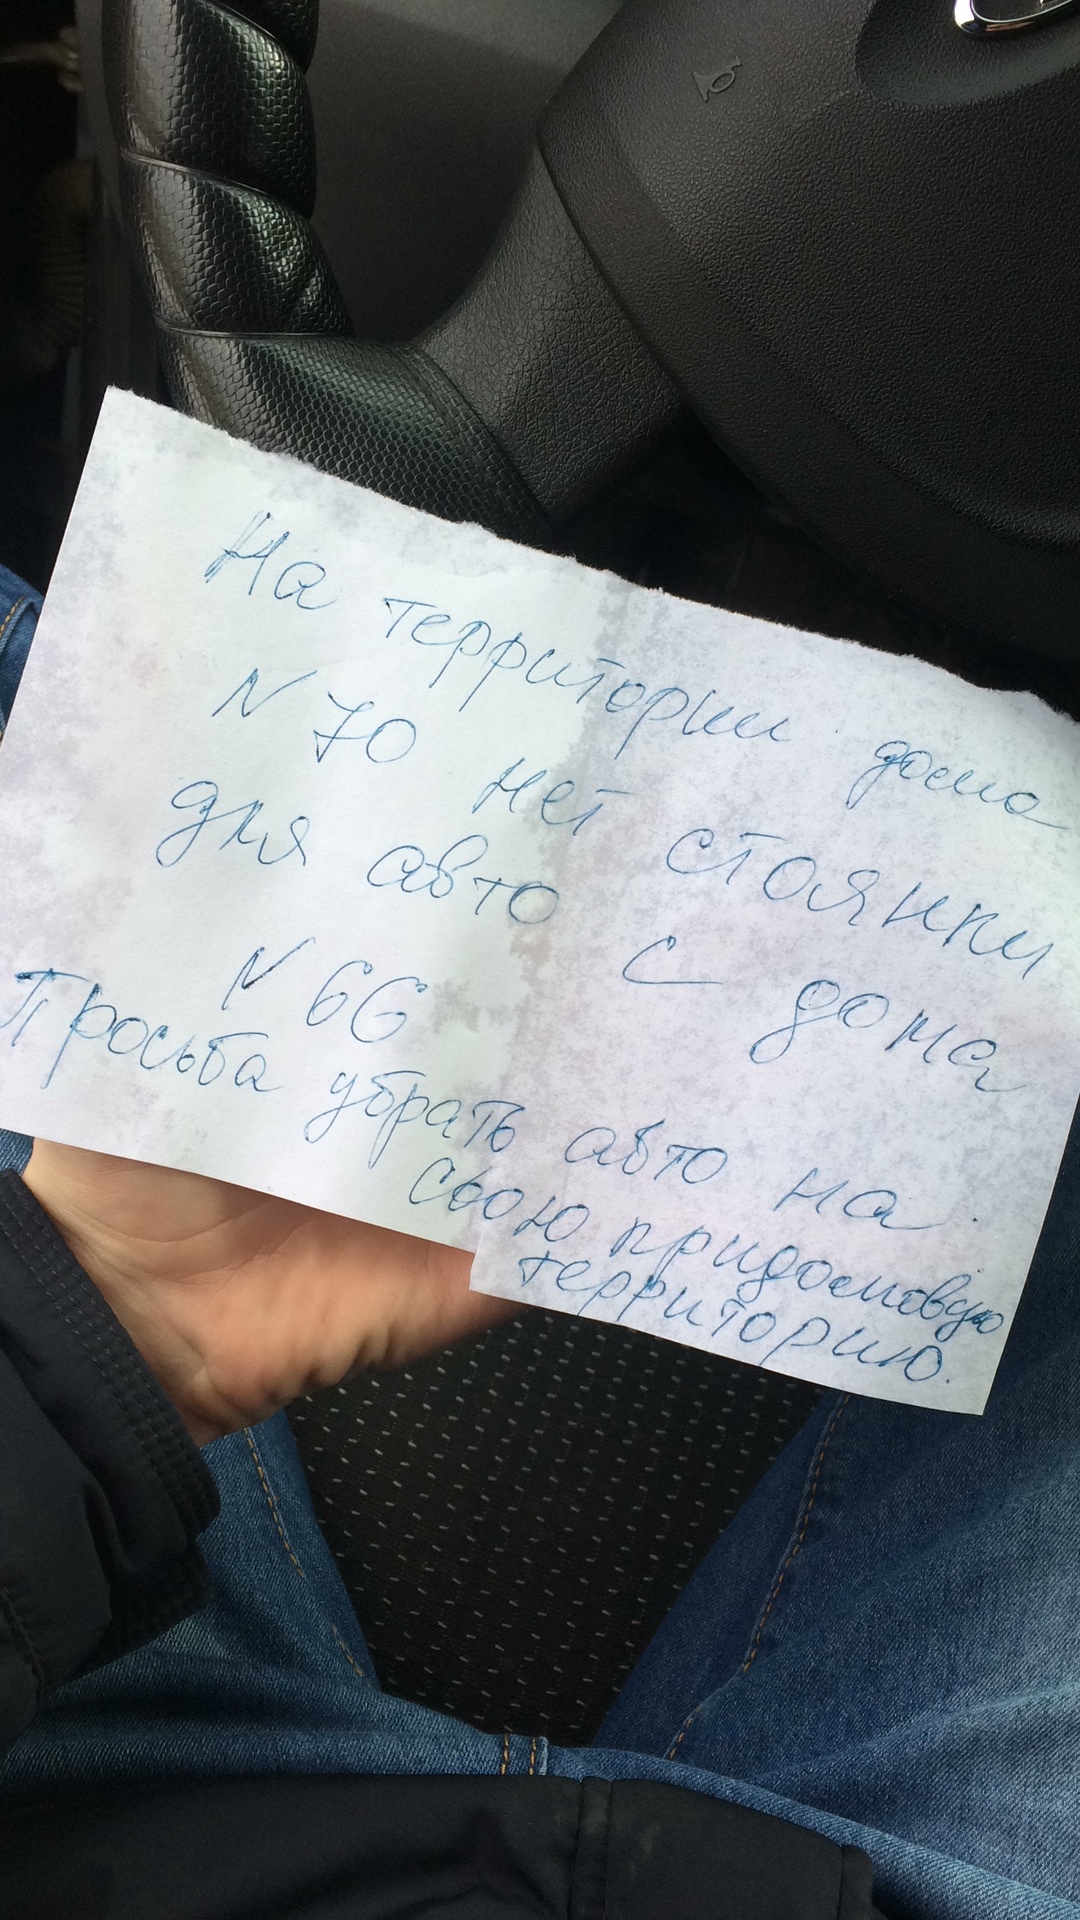 На территории дома
N 70 нет стоянки
для авто с дома
N 66
Просьба убрать авто на
свою придомовую
территорию.